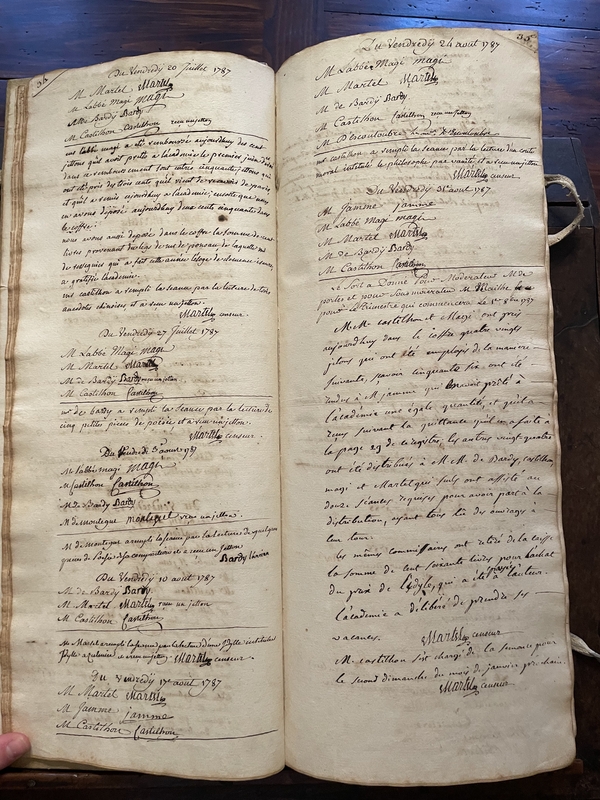 Du Vendredy 20 Juillet 1787
M. Martel Martel
M. Labbé Magi magi
M. de Bardy Bardy
M. Castilhon Castilhon reçu un jetton
mr labbé magi a été remboursé aujourdhuy des cent
jettons quil avoit pretés a lacadémie le premier juin
dans ce remboursement sont entrés cinquante jettons qui
ont été pris des trois cents quil vient de recevoir de paris
et quil a remis aujourdhuy a lacadémie; en sorte que nous
en avons déposé aujourdhuy deux cents cinquante dans
le coffre.
nous avons aussi déposé dans le coffre la somme de
livres provenant
de a fait cette année
a gratifié lacadémie.
mr castilhon a rempli la séance par la lecture de trois
anecdotes chinoises et a reçu un jetton.
Martel censeur.
Du Vendredy 27 Juillet 1787
M. Labbé Magi magi
M. Martel Martel
M. de Bardy Bardy reçu un jetton
M. Castilhon Castilhon
mr de bardy a rempli la séance par la lecture de
cinq petites pieces de poésie et a reçu un jetton.
Martel censeur.
Du Vendredi 3 aout 1787
M. labbé magi magi
M. Castilhon Castilhon
M. de Bardy Bardy
M. de montegut montegut reçu un jetton.
M. de montegut a rempli la séance par la lecture de quelques
pieces de Poësie de sa composition et a reçu un jetton
Bardy
Du Vendredy 10 aout 1787
M. de Bardy Bardy
M. Martel Martel reçu un jetton
M. Castilhon Castilhon
Mr. Martel a rempli la séance par la lecture d'une Idylle intitulée
Idylle a et a reçu un jetton. Martel censeur.
Du Vendredy 17e aout 1787
M. Martel Martel
M. Jamme jamme
M. Castilhon Castilhon
35
Du Vendredy 24 aout 1787
M. Labbé Magi magi
M. Martel Martel
M. de Bardy Bardy
M. Castilhon Castilhon reçu un jetton
M. D'escouloubre
mr castilhon a rempli la séance par la lecture d'un conte
moral intitulé le philosophe par vanité, et a reçu un jetton
Martel censeur.
Du Vendredy 31e aout 1787
M. Jamme jamme
M. Labbé Magi magi
M. Martel Martel
M. de Bardy Bardy
M. Castilhon Castilhon
Le Sort a Donné Pour Modérateur M. de
portes et pour Sousmodérateur M. Mailhe
pour le trimestre qui commencera le 1er 7bre 1787
MM. castilhon et Magi ont pris
aujourdhuy dans le coffre quatre vingts
jettons qui ont été employés de la maniere
suivante, savoir cinquante six ont été
rendus à M. jamme qui avoit prêté à
l'académie une égale quantité, et qu'il a
reçus suivant la quittance qu'il en a faite à
la page 29 de ce registre, les autres vingt quatre
ont été distribués à MM. de Bardy, castilhon,
magi et Martel qui seuls ont assisté au
douze séances requises pour avoir part à la
distribution, ayant tous lu des ouvrages à
leur tour.
les mêmes commissaires ont retiré de la caisse
la somme de cent soixante livres pour l'achat
du prix de l'idylle, qui a été à l'auteur.
L'académie a délibéré de prendre ses
vacances.
Martel censeur
M. castilhon s'est chargé de la semonce pour
le second dimanche du mois de janvier prochain.
Martel censeur